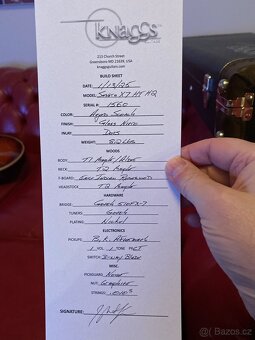 Knaggs
GUITARS
213 Church Street
Greensboro MD 21639, USA
knaggsguitars.com
BUILD SHEET
DATE: 1/13/25
MODEL: X7 HH HQ
SERIAL #: 1560
COLOR:
FINISH: Gloss Nitro
INLAY: Dots
WEIGHT: 8.12 lbs
WOODS
BODY: T1 Maple/
NECK: T2 Maple
F-BOARD: East Indian Rosewood
HEADSTOCK: T2 Maple
HARDWARE
BRIDGE: Gotoh 510FX-7
TUNERS: Gotoh
PLATING: Nickel
ELECTRONICS
PICKUPS: B.K.
1 VOL 1 TONE
SWITCH: 3-way Blade
MISC.
PICKGUARD: None
NUT: Graphite
STRINGS: .010's
SIGNATURE:
sbazar.cz